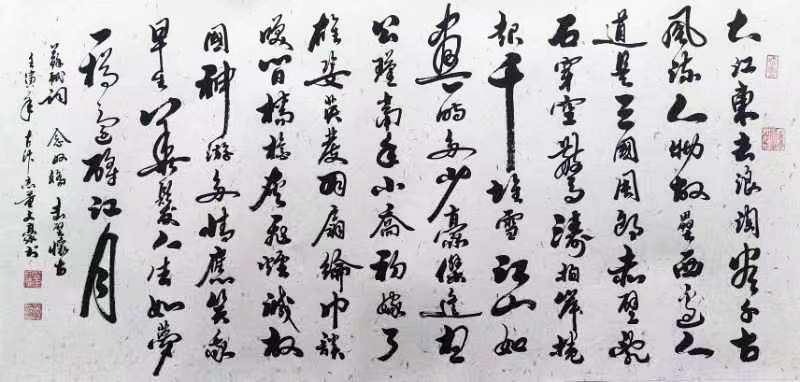 大江東去浪淘盡千古
風流人物故壘西邊人
道是三國周郎赤壁亂
石穿空驚濤拍岸捲
起千堆雪江山如
畫一時多少豪傑遙想
公瑾當年小喬初嫁了
雄姿英發羽扇綸巾談
笑間檣櫓灰飛煙滅故
國神游多情應笑我
早生華髮人生如夢
一樽還酹江月
蘇軾詞 念奴嬌 赤壁懷古
壬寅年